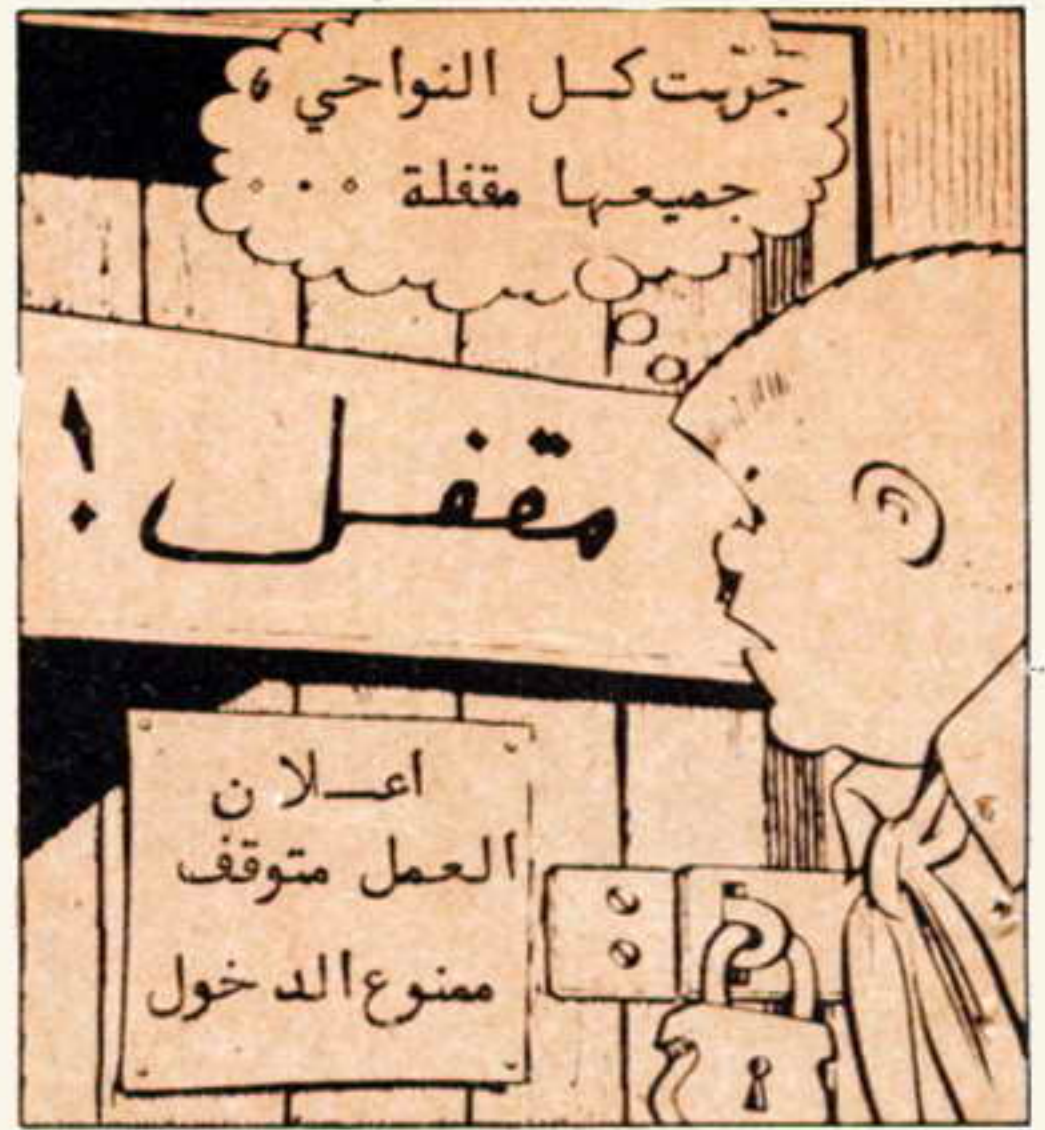 جرّبت كل النواحي ،
جميعها مقفلة ...
مقفل !
اعلان
العمل متوقف
ممنوع الدخول